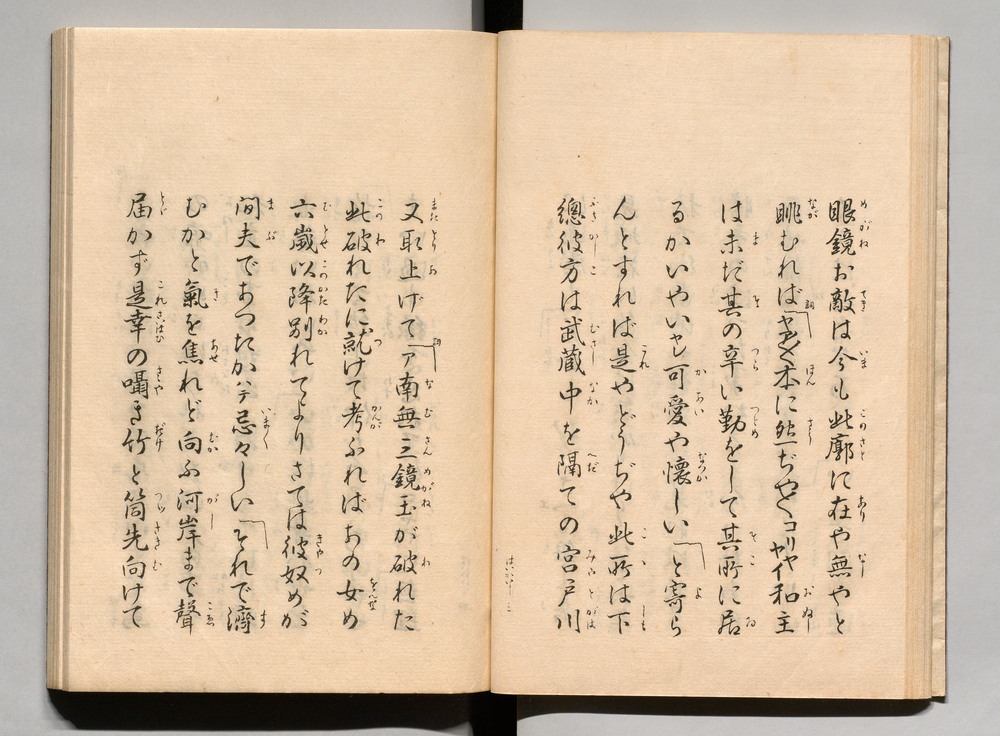 眼鏡お敵は今も此廓に在や無やと
眺むれば「ヤア〳〵本に然ぢや〳〵コリヤヤイ和主
は未だ其の辛い勤をして其所に居
るかいやいヤレ可愛や懐しい」と寄ら
んとすれば是やどうぢや此所は下
總彼方は武蔵中を隔ての宮戸川
又取上げて「ア南無三鏡玉が破れた
此破れたに就けて考ふればあの女め
六歳以降別れてよりさては彼奴めが
間夫であつたかハテ忌々しい」それで濟
むかと氣を焦れど向ふ河岸まで聲
届かず是幸の囁き竹と筒先向けて